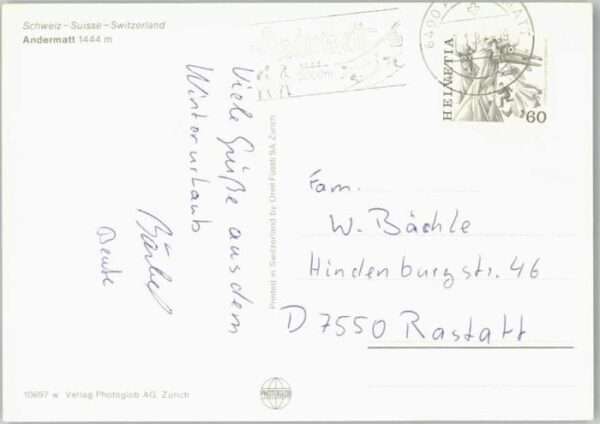 Schweiz – Suisse – Switzerland
Andermatt 1444 m
Viele Grüße aus dem
Winterurlaub
Bärbel
Beate
Printed in Switzerland by Orell Füssli SA, Zürich
HELVETIA
60
Fam.
W. Bächle
Hindenburgstr. 46
D 7550 Rastatt
10697 w Verlag Photoglob AG, Zürich
PHOTOGLOB